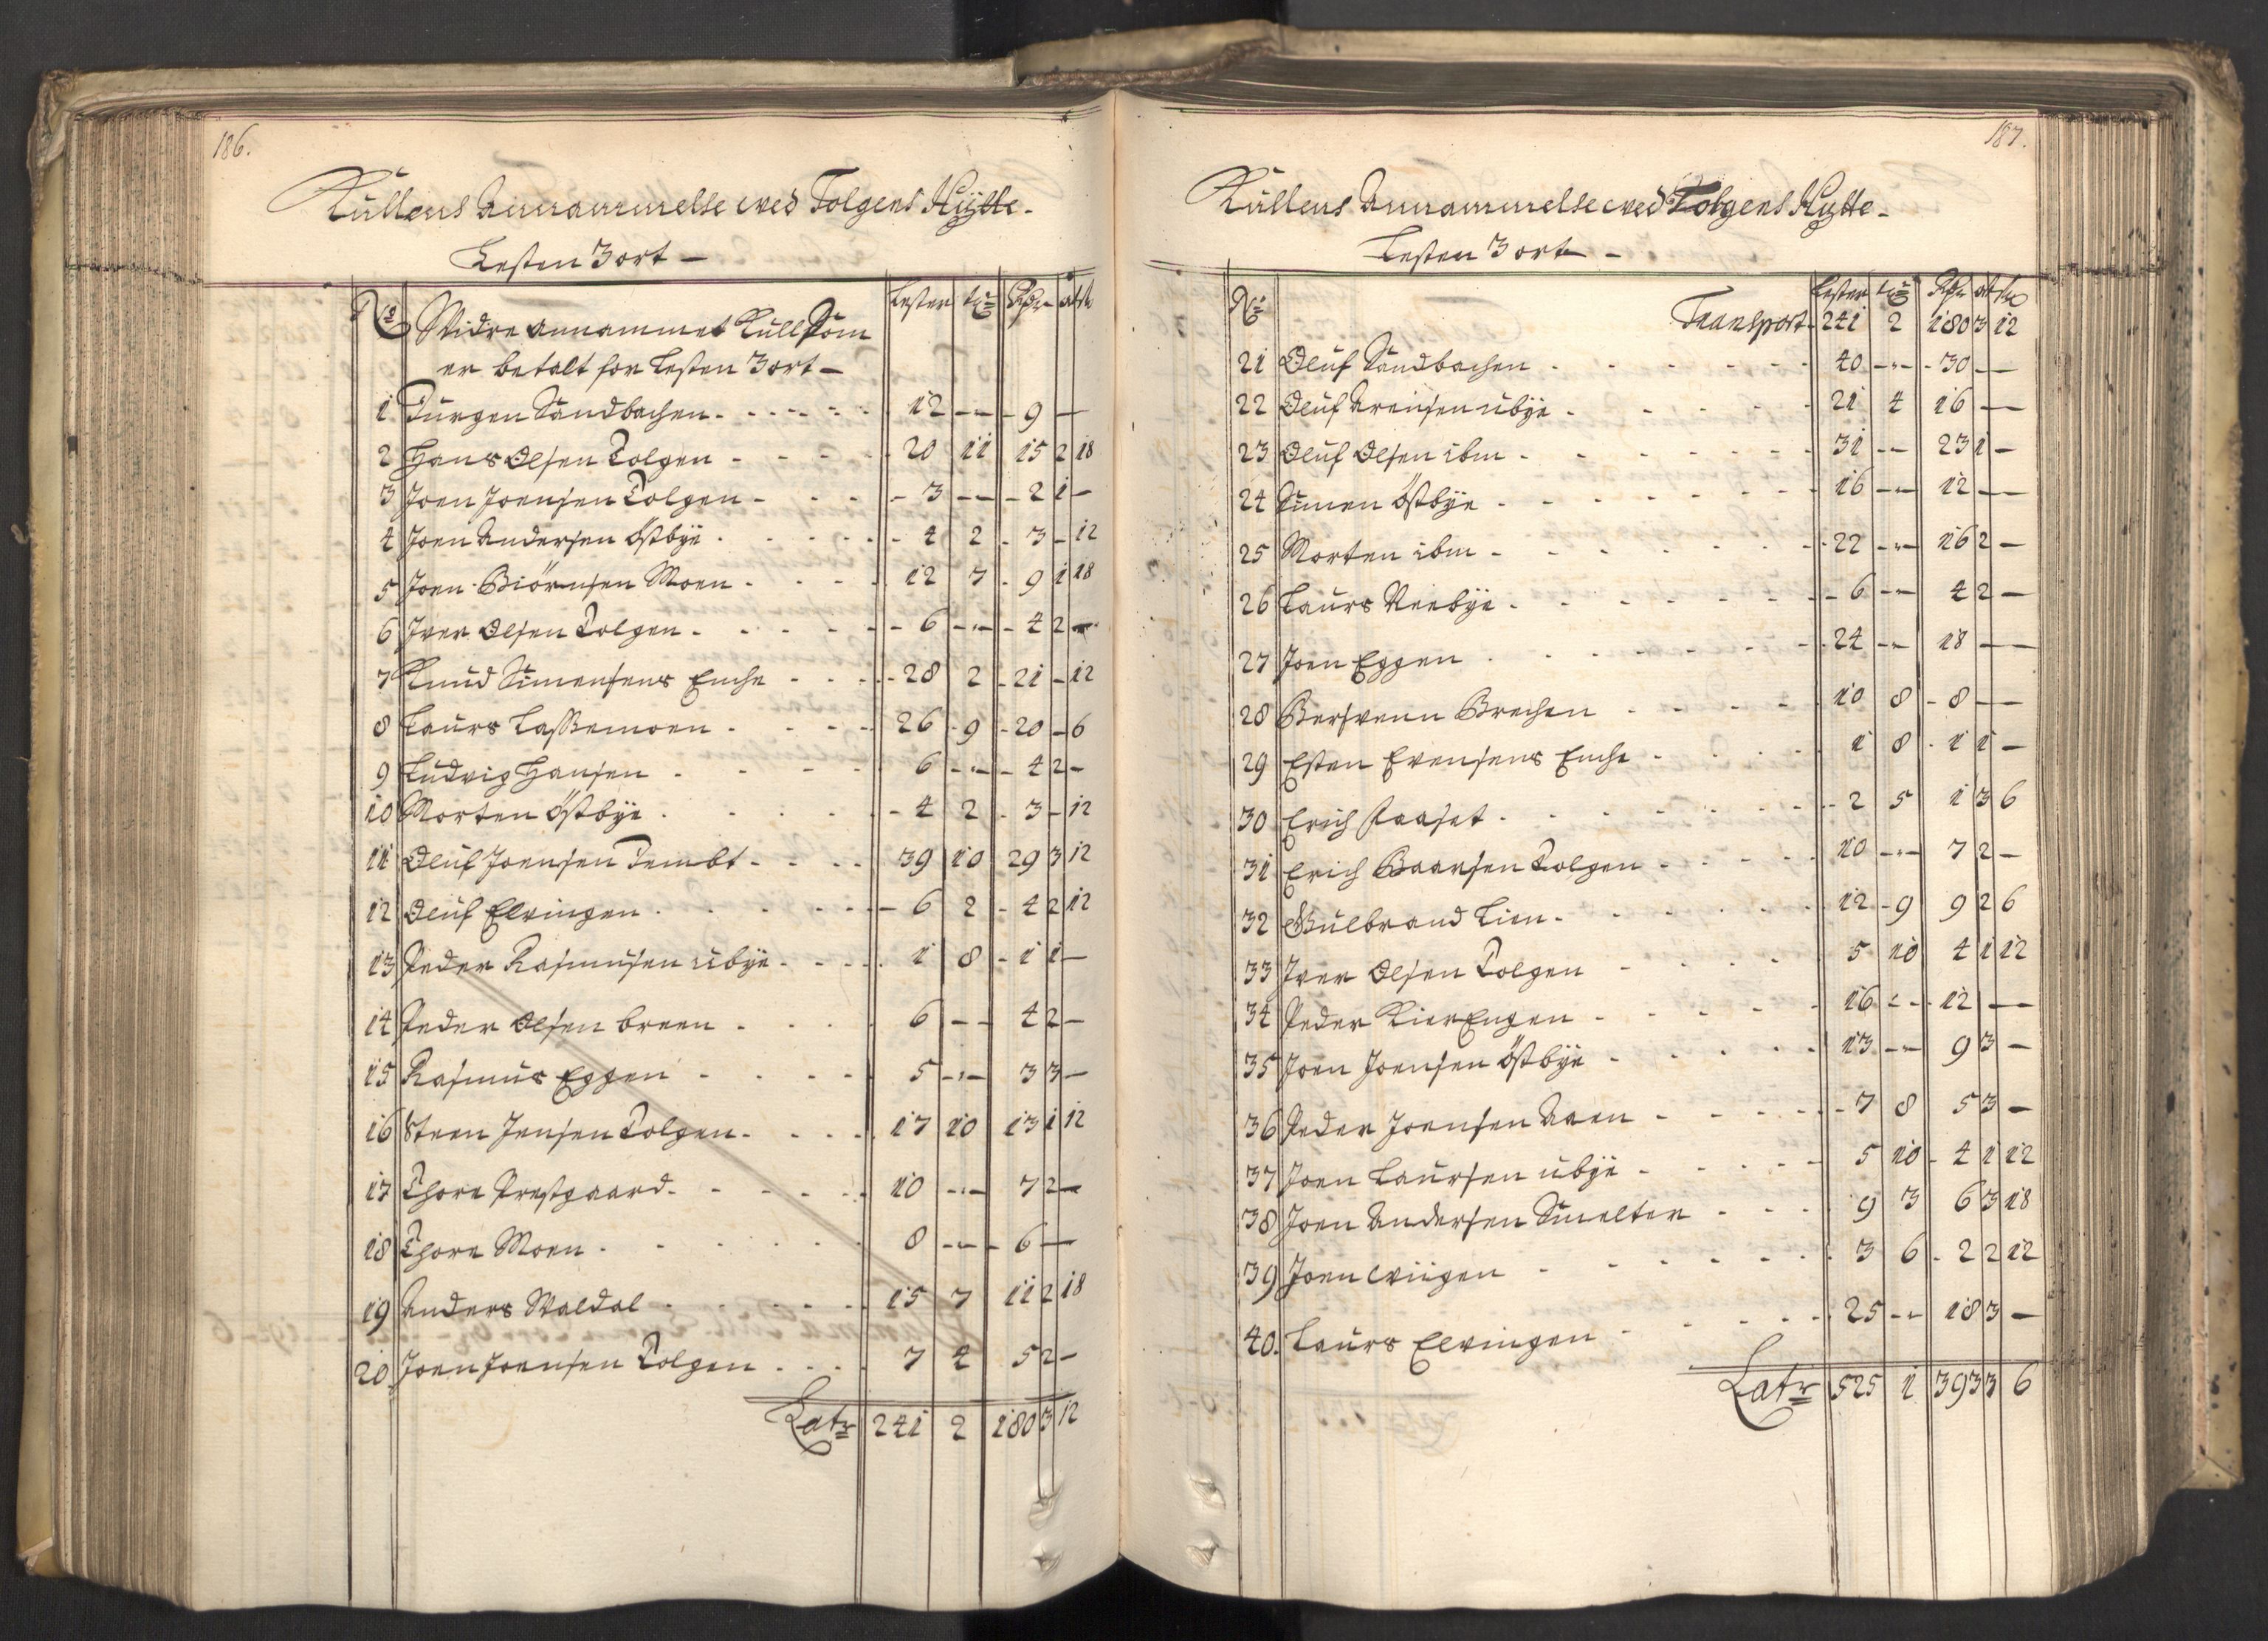 186.
Kullens Annammelse wed Tolgens Hÿtte.
Lesten 3 ort —
No Widre annammet Kull Som Lester tr Rdr ort s
er betalt for Lesten 3 ort —
1 Jurgen Sandbachen 12 — 9 —
2 Hans Olsen Tolgen 20 11 15 2 18
3 Joen Joensen Tolgen 3 — 2 1 —
4 Joen Andersen Östbÿe 4 2 3 — 12
5 Joen Biörnsen Moen 12 7 9 1 18
6 Iver Olsen Tolgen 6 — 4 2 —
7 Knud Simensens Enche 28 2 21 — 12
8 Laurs Lassemoen 26 9 20 — 6
9 Ludvig Hansen 6 — 4 2 —
10 Morten Östbÿe 4 2 3 — 12
11 Oluf Joensen Tembt 39 10 29 3 12
12 Oluf Elvingen 6 2 4 2 12
13 Peder Rasmusen ubÿe 1 8 1 1 —
14 Peder Olsen breen 6 — 4 2 —
15 Rasmus Eggen 5 — 3 3 —
16 Steen Jensen Tolgen 17 10 13 1 12
17 Thore Prestgaard 10 — 7 2 —
18 Thore Moen 8 — 6 —
19 Anders Waldal 15 7 11 2 18
20 Joen Joensen Tolgen 7 4 5 2 —
Latr 241 2 180 3 12
187.
Kullens Annammelse wed Tolgens Hytte.
Lesten 3 ort —
No Lester tr Rdr ort s
Transport 241 2 180 3 12
21 Oluf Sandbachen 40 — 30 —
22 Oluf Arensen ubÿe 21 4 16 —
23 Oluf Olsen ibm 31 — 23 1 —
24 Simen Östbÿe 16 — 12 —
25 Morten ibm 22 — 16 2 —
26 Laurs Neebÿe 6 — 4 2 —
27 Joen Eggen 24 — 18 —
28 Bersvenn Brechen 10 8 8 —
29 Esten Evensens Enche 1 8 1 1 —
30 Erich Paaset 2 5 1 3 6
31 Erich Baarsen Tolgen 10 — 7 2 —
32 Gulbrand Lien 12 9 9 2 6
33 Iver Olsen Tolgen 5 10 4 1 12
34 Peder KierEngen 16 — 12 —
35 Joen Joensen Östbÿe 13 — 9 3 —
36 Peder Joensen Aaen 7 8 5 3 —
37 Joen Laursen ubÿe 5 10 4 1 12
38 Joen Andersen Smelter 9 3 6 3 18
39 Joen wiigen 3 6 2 2 12
40. Laurs Elvingen 25 — 18 3 —
Latr 525 1 393 3 6